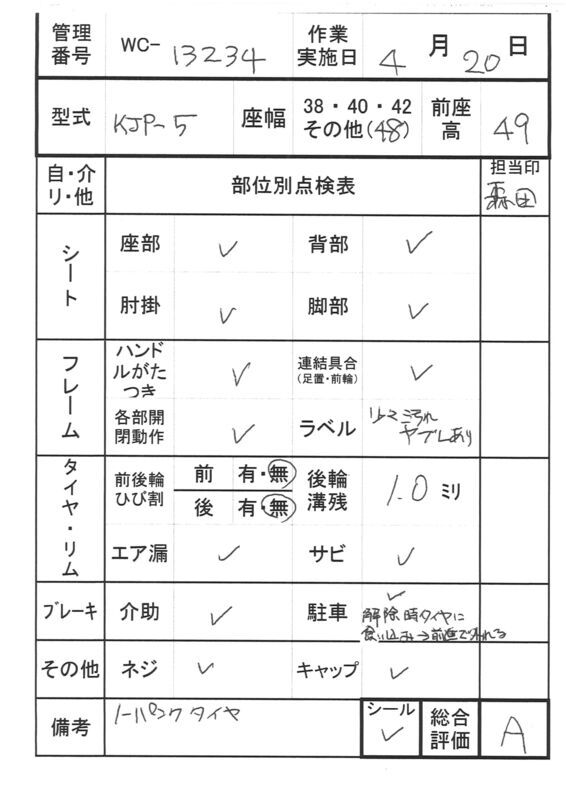 管理番号 WC-13234 作業実施日 4月20日
型式 KJP-5 座幅 38・40・42 その他(48) 前座高 49
自・介 リ・他 部位別点検表 担当印 森田
シート 座部 ✓ 背部 ✓
肘掛 ✓ 脚部 ✓
フレーム ハンドルがたつき ✓ 連結具合(足置・前輪) ✓
各部開閉動作 ✓ ラベル 汚れ ヤブレあり
タイヤ・リム 前後輪ひび割 前 有・無 後 有・無 後輪溝残 1.0 ミリ
エア漏 ✓ サビ ✓
ブレーキ 介助 ✓ 駐車 ✓
解除時タイヤに
食い込み→前進で外れる
その他 ネジ ✓ キャップ ✓
備考 ノーパンクタイヤ シール ✓ 総合評価 A